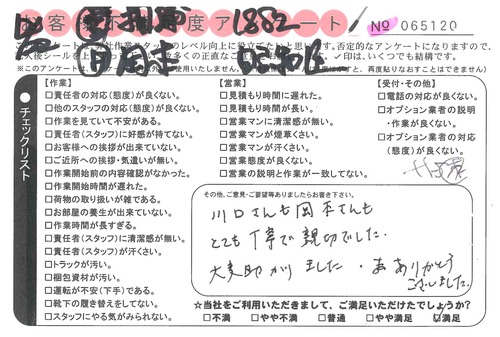 お客様不満足度アンケート
1882
№ 065120
チェックリスト
【作業】
□責任者の対応(態度)が良くない。
□他のスタッフの対応(態度)が良くない。
□作業を見ていて不安がある。
□責任者(スタッフ)に好感が持てない。
□お客様への挨拶が出来ていない。
□ご近所への挨拶・気遣いが無い。
□作業開始前の内容確認がなかった。
□作業開始時間が遅れた。
□荷物の取り扱いが雑である。
□お部屋の養生が出来ていない。
□作業時間が長すぎる。
□責任者(スタッフ)に清潔感が無い。
□責任者(スタッフ)が汗くさい。
□トラックが汚い。
□梱包資材が汚い。
□運転が不安(下手)である。
□靴下の履き替えをしてない。
□スタッフにやる気がみられない。
【営業】
□見積もり時間に遅れた。
□見積もり時間が長い。
□営業マンに清潔感が無い。
□営業マンが煙草くさい。
□営業マンが汗くさい。
□営業態度が良くない。
□営業の説明と作業が一致してない。
【受付・その他】
□電話の対応が良くない。
□オプション業者の説明
・作業が良くない。
□オプション業者の対応
(態度)が良くない。
その他、ご意見・ご要望等ありましたらお書き下さい。
川口さんも岡本さんも
とても丁寧で親切でした。
大変助かりました。 ありがとう
ございました。
☆当社をご利用いただきまして、ご満足いただけたでしょうか?
□不満 □やや不満 □普通 □やや満足 ☑満足